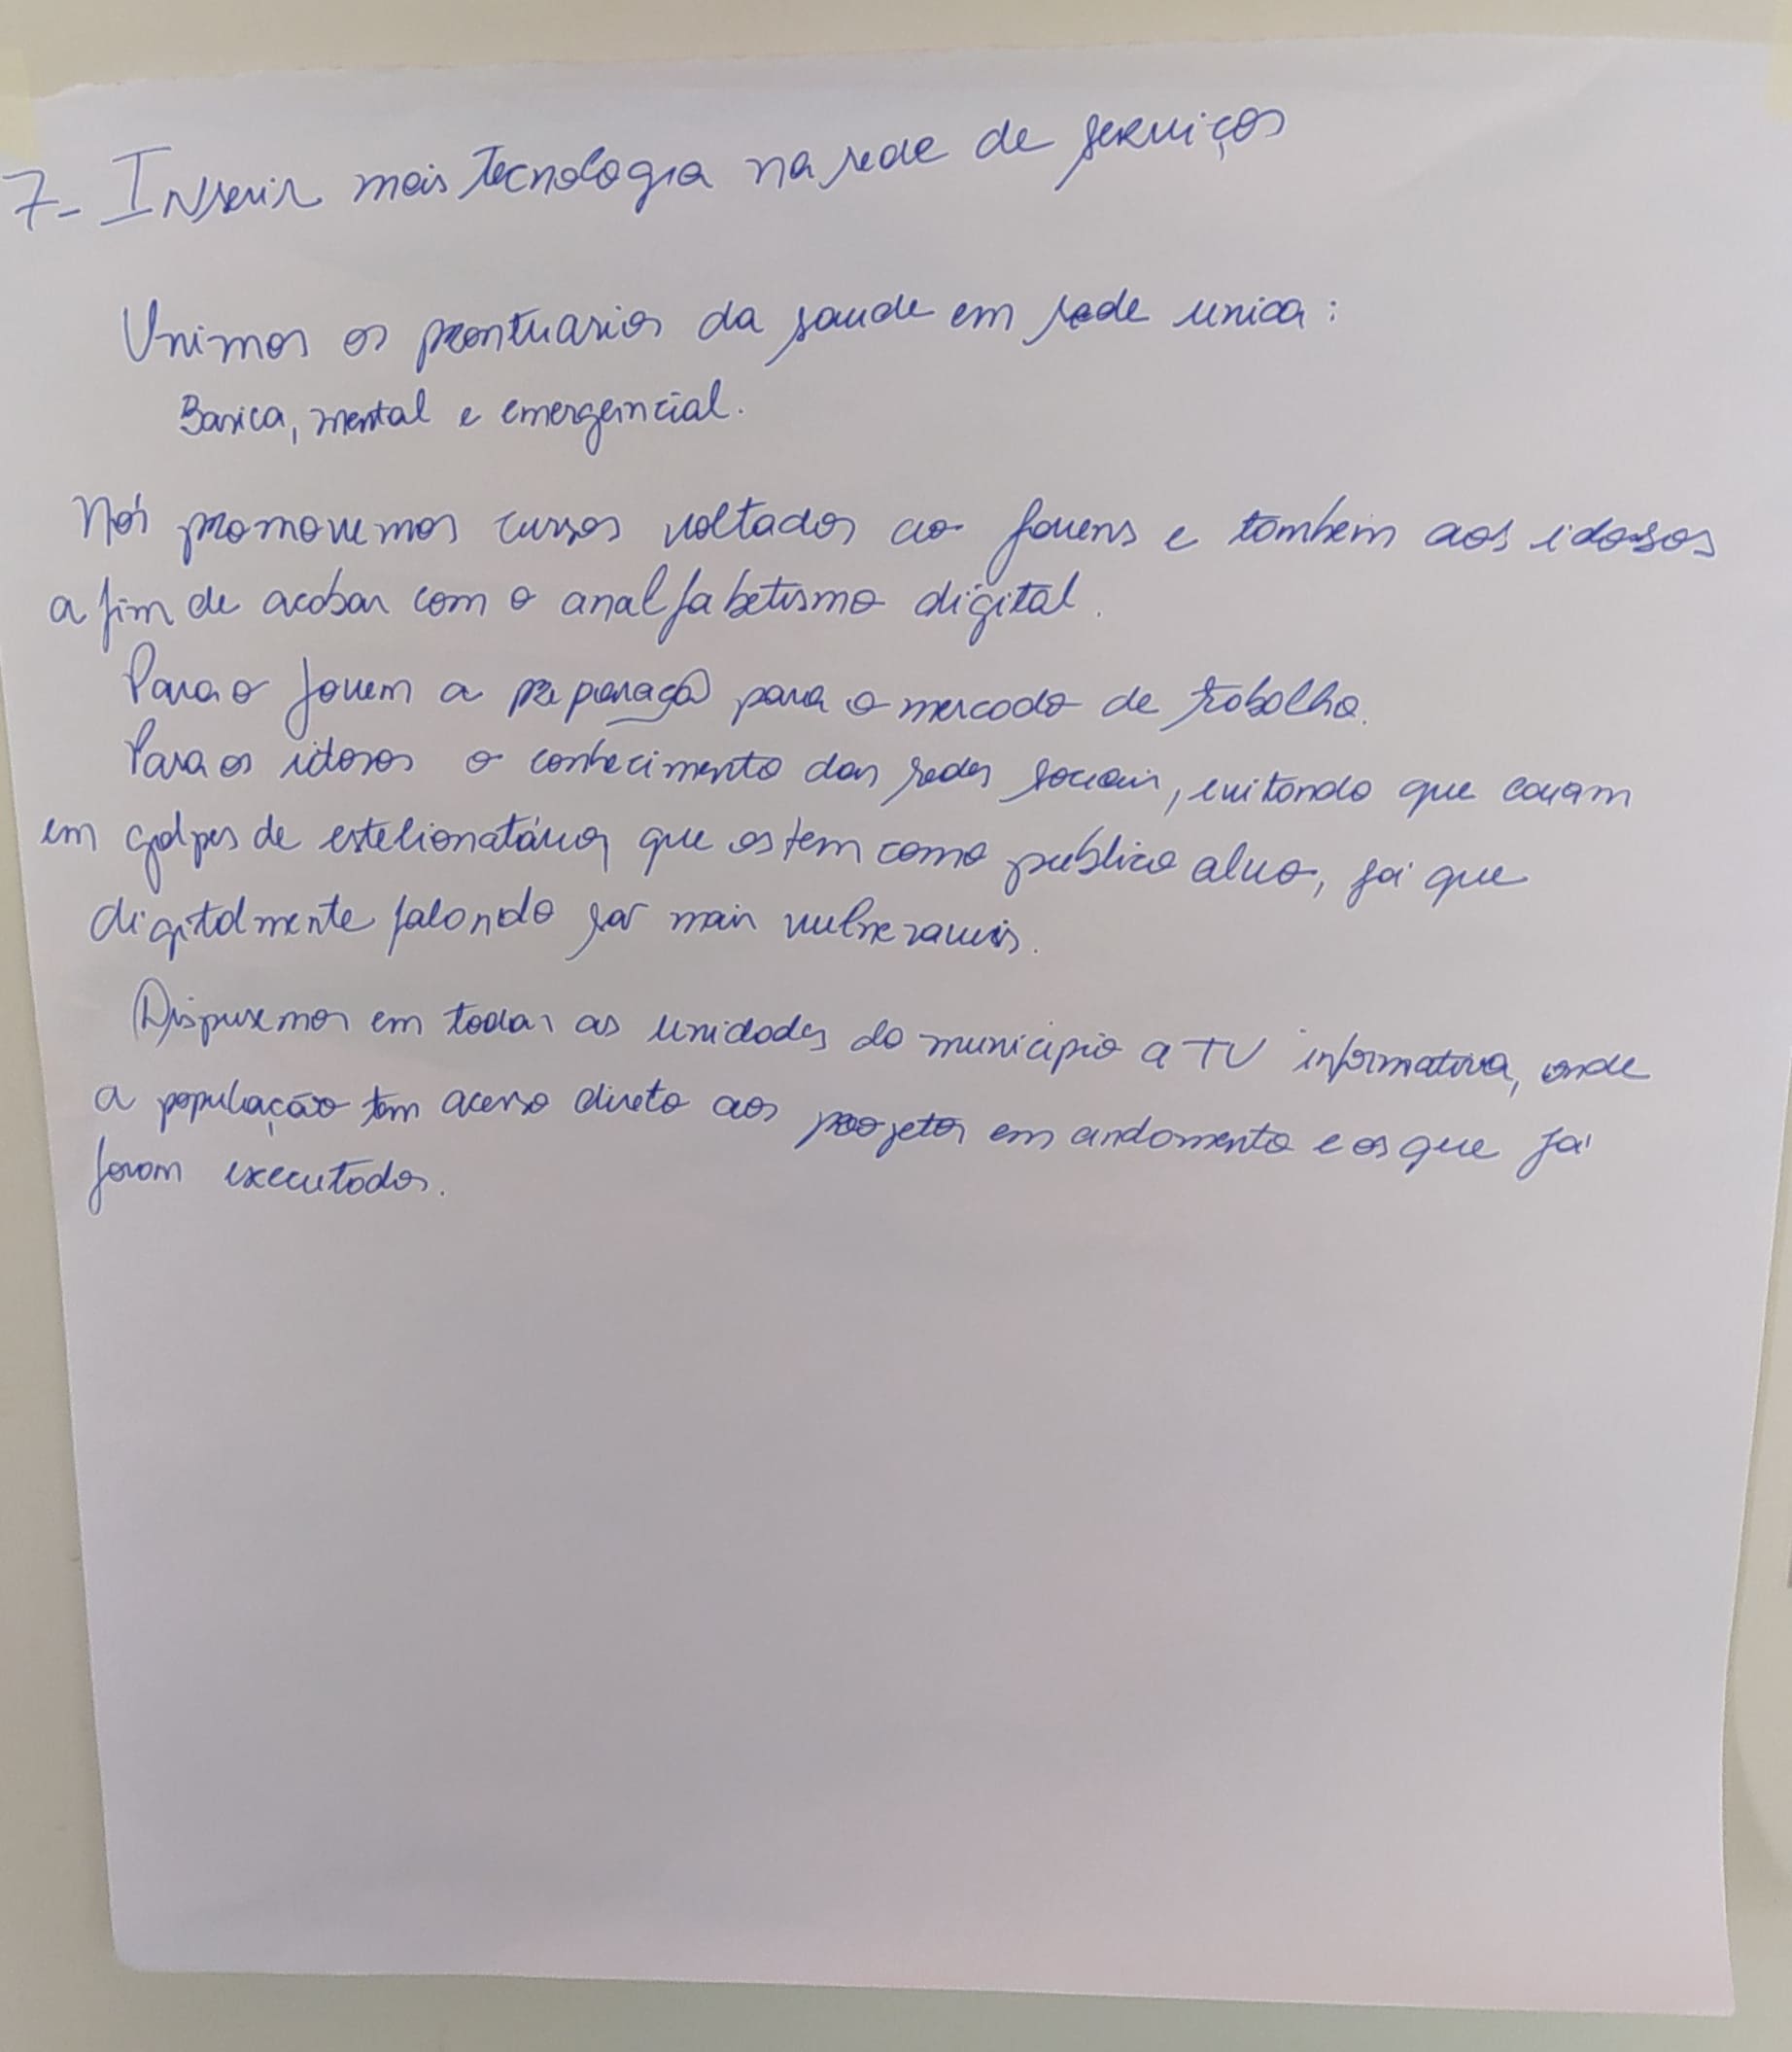 7- Inserir mais tecnologia na rede de serviços
Unimos os prontuarios da saude em rede unica:
Basica, mental e emergencial.
Nós promovemos cursos voltados ao jovens e também aos idosos
a fim de acabar com o analfabetismo digital.
Para o jovem a preparação para o mercado de trabalho.
Para os idosos o conhecimento das redes sociais, evitando que caiam
em golpes de estelionatários que os tem como publico alvo, já que
digitalmente falando são mais vulneraveis.
Dispusemos em todas as unidades do municipio a TV informativa, onde
a população tem acesso direto aos projetos em andamento e os que já
foram executados.